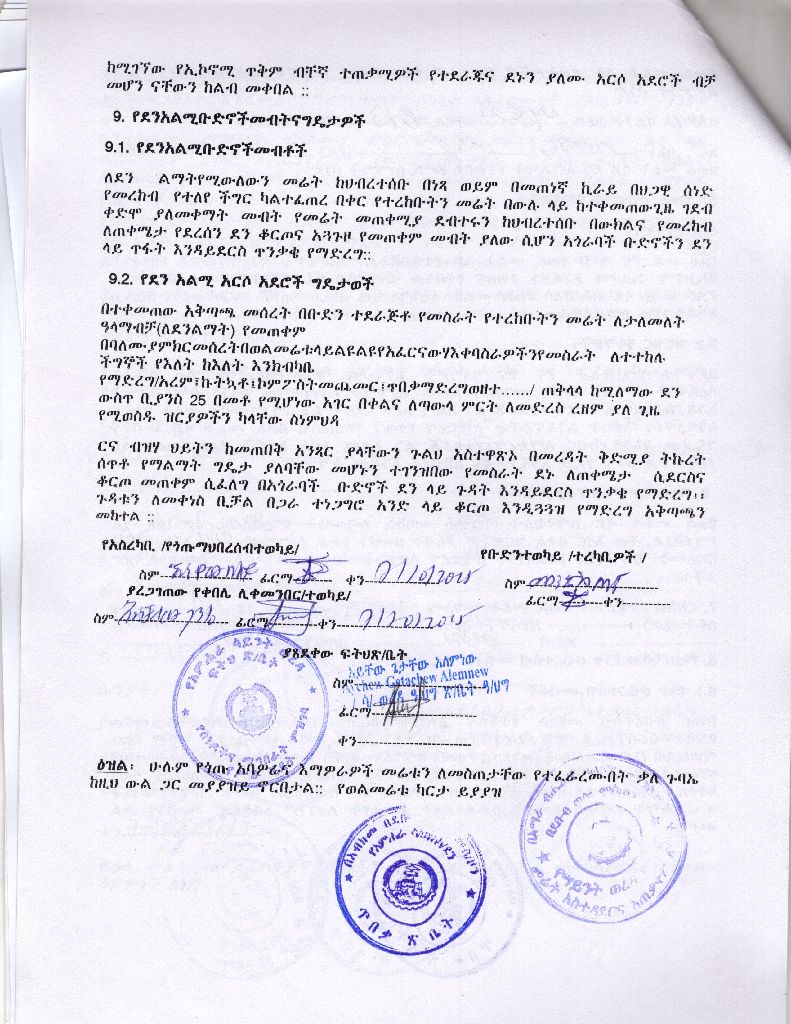 ከሚገኘው የኢኮኖሚ ጥቅም ብቸኛ ተጠቃሚዎች የተደራጁና ደኑን ያለሙ አርሶ አደሮች ብቻ
መሆን ናቸውን ከልብ መቀበል ፡፡
9. የደንአልሚቡድኖችመብትናግዴታዎች
9.1. የደንአልሚቡድኖችመብቶች
ለደን ልማትየሚውለውን መሬት ከህብረተሰቡ በነጻ ወይም በመጠነኛ ኪራይ በህጋዊ ሰነድ
የመረከብ የተለየ ችግር ካልተፈጠረ በቀር የተረከቡትን መሬት በውሉ ላይ ከተቀመጠውጊዜ ገደብ
ቀድሞ ያለመቀማት መብት የመሬት መጠቀሚያ ደብተሩን ከህብረተሰቡ በውክልና የመረከብ
ለጠቀሜታ የደረሰን ደን ቆርጦና አጓጉዞ የመጠቀም መብት ያለው ሲሆን አጎራባች ቡድኖችን ደን
ላይ ጥፋት እንዳይደርስ ጥንቃቄ የማድረግ፡፡
9.2. የደን አልሚ አርሶ አደሮች ግዴታወች
በተቀመጠው አቅጣጫ መሰረት በቡድን ተደራጅቶ የመስራት የተረከቡትን መሬት ለታለመለት
ዓላማብቻ(ለደንልማት) የመጠቀም
በባለሙያምክርመሰረትበወልመሬቱላይልዩልዩየአፈርናውሃእቀባስራዎችንየመስራት ለተተከሉ
ችግኞች የእለት ከእለት እንክብካቤ
የማድረግ/አረም፣ኩትኳቶ፣ኮምፖስትመጨመር፣ጥበቃማድረግወዘተ....../ ጠቅላላ ከሚለማው ደን
ውስጥ ቢያንስ 25 በመቶ የሚሆነው አገር በቀልና ለጣውላ ምርት ለመድረስ ረዘም ያለ ጊዜ
የሚወስዱ ዝርያዎችን ካላቸው ስነምህዳ
ርና ብዝሃ ህይትን ከመጠበቅ አንጻር ያላቸውን ጉልህ አስተዋጽኦ በመረዳት ቅድሚያ ትኩረት
ሰጥቶ የማልማት ግዴታ ያለባቸው መሆኑን ተገንዝበው የመስራት ደኑ ለጠቀሜታ ሲደርስና
ቆርጦ መጠቀም ሲፈለግ በአጎራባች ቡድኖች ደን ላይ ጉዳት እንዳይደርስ ጥንቃቄ የማድረግ፡፡
ጉዳቱን ለመቀነስ ቢቻል በጋራ ተነጋግሮ አንድ ላይ ቆርጦ እንዲጓጓዝ የማድረግ አቅጣጫን
መከተል ፡፡
የአስረካቢ /የጎጡማህበረሰብተወካይ/
የቡድንተወካይ /ተረካቢዎች /
ስም ፊርማ ቀን 7/10/2015
ስም
ፊርማ ቀን
ያረጋገጠው የቀበሌ ሊቀመንበር/ተወካይ/
ስም ፊርማ ቀን 7/10/2015
ያጸደቀው ፍትህጽ/ቤት
አይቸው ጌታቸው አለምነው
ስም
Aychew Getachew Alemnew
ፊርማ
ቀን
ዕዝል፡ ሁሉም የጎጡ አባዎራና እማዎራዎች መሬቱን ለመስጠታቸው የተፈራረሙበት ቃለ ጉባኤ
ከዚህ ውል ጋር መያያዝይ ኖርበታል፡፡ የወልመሬቱ ካርታ ይያያዝ
ጥበቃ ጽ ቤት